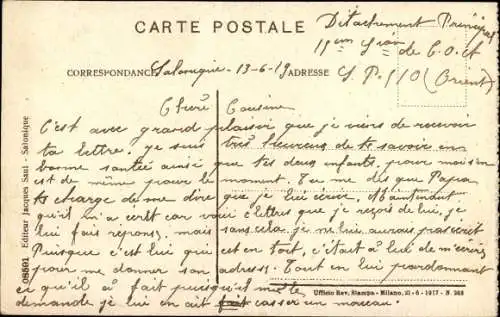 CARTE POSTALE
Détachement Principal
11em Son de C.O.A
CORRESPONDANCE Salonique - 13-6-19 ADRESSE S. P. 510 (Orient)
Cheré Cousine
C'est avec grand plaisir que je viens de recevoir
ta lettre. je suis très heureux de te savoir en
bonne santée ainsi que tes deux enfants. pour moi s'en
est de même pour le moment. Tu me dis que Papa
te charge de me dire que je lui écrire. Maintenant
qu'il m'a ecrit car voici lettres que je reçois de lui, je
lui fais repons, mais sans cela je ne lui aurais pas ecrit
Puisque c'est lui qui est en tort, c'était a lui de m'écrire
pour me donner son adress. Tout en lui pardonnant
ce qu'il a fait puisqu'il me le
demande je lui en ait fait casser un morceau.
08601 Editeur Jacques Saul - Salonique
Ufficio Rev. Stampa - Milano, 21-6-1917 - N. 268